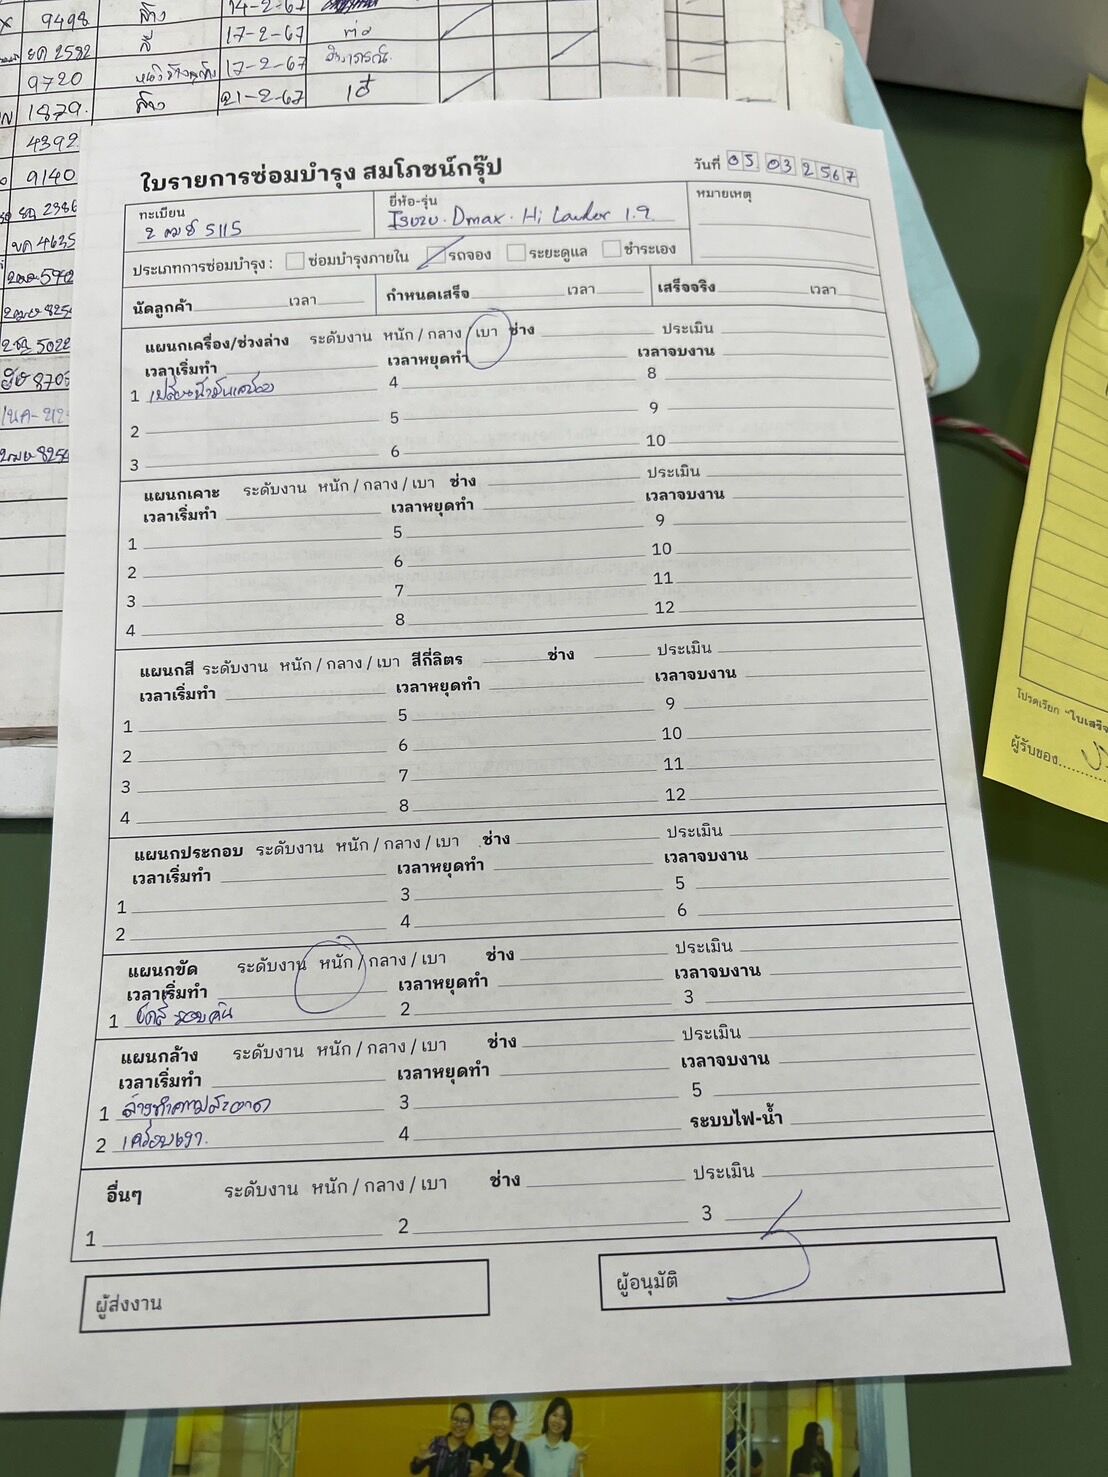 9498 ล้าง 14-2-67
ยค 2582 สี 17-2-67 ต่อ
9720 17-2-67
1879. ล้าง 21-2-67 เอ๋
4392
9140
ขฉ 2386
ขค 4635
8254
2ขฐ 5022
2ฒษ 8254
ใบรายการซ่อมบำรุง สมโภชน์กรุ๊ป
วันที่ 05 03 2567
ทะเบียน
2 ฒษ 5115
ยี่ห้อ-รุ่น
Isuzu. Dmax. Hi Lander 1.9
หมายเหตุ
ประเภทการซ่อมบำรุง : ซ่อมบำรุงภายใน รถจอง ระยะดูแล ชำระเอง
นัดลูกค้า เวลา กำหนดเสร็จ เวลา เสร็จจริง เวลา
แผนกเครื่อง/ช่วงล่าง ระดับงาน หนัก / กลาง / เบา ช่าง ประเมิน
เวลาเริ่มทำ เวลาหยุดทำ เวลาจบงาน
1 เปลี่ยนน้ำมันเครื่อง 4 8
2 5 9
3 6 10
แผนกเคาะ ระดับงาน หนัก / กลาง / เบา ช่าง ประเมิน
เวลาเริ่มทำ เวลาหยุดทำ เวลาจบงาน
1 5 9
2 6 10
3 7 11
4 8 12
แผนกสี ระดับงาน หนัก / กลาง / เบา สีกี่ลิตร ช่าง ประเมิน
เวลาเริ่มทำ เวลาหยุดทำ เวลาจบงาน
1 5 9
2 6 10
3 7 11
4 8 12
แผนกประกอบ ระดับงาน หนัก / กลาง / เบา ช่าง ประเมิน
เวลาเริ่มทำ เวลาหยุดทำ เวลาจบงาน
1 3 5
2 4 6
แผนกขัด ระดับงาน หนัก / กลาง / เบา ช่าง ประเมิน
เวลาเริ่มทำ เวลาหยุดทำ เวลาจบงาน
1 ขัดสี รอบคัน 2 3
แผนกล้าง ระดับงาน หนัก / กลาง / เบา ช่าง ประเมิน
เวลาเริ่มทำ เวลาหยุดทำ เวลาจบงาน
1 ล้างทำความสะอาด 3 5
2 เคลือบเงา. 4 ระบบไฟ-น้ำ
อื่นๆ ระดับงาน หนัก / กลาง / เบา ช่าง ประเมิน
1 2 3
ผู้ส่งงาน
ผู้อนุมัติ
โปรดเรียก "ใบเสร็จ
ผู้รับของ